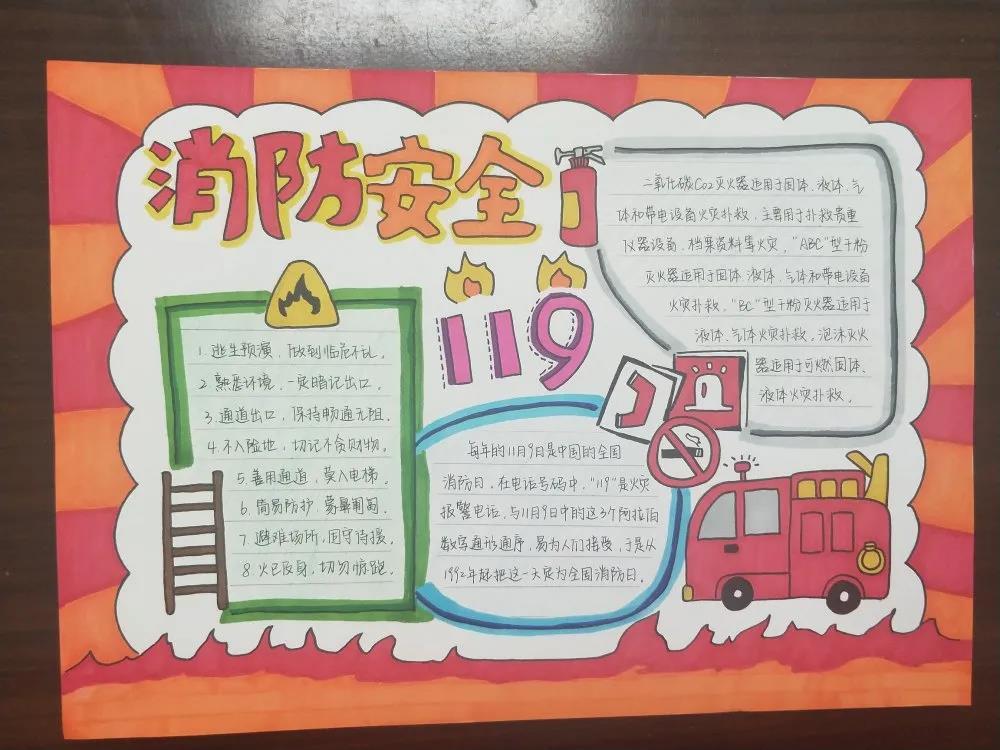 消防安全
119
1. 逃生预演,做到临危不乱。
2. 熟悉环境,一定暗记出口。
3. 通道出口,保持畅通无阻。
4. 不入险地,切记不贪财物。
5. 善用通道,莫入电梯。
6. 简易防护,蒙鼻匍匐。
7. 避难场所,固守待援。
8. 火已及身,切勿惊跑。
二氧化碳CO2灭火器适用于固体、液体、气
体和带电设备火灾扑救,主要用于扑救贵重
仪器设备、档案资料等火灾,"ABC"型干粉
灭火器适用于固体、液体、气体和带电设备
火灾扑救,"BC"型干粉灭火器适用于
液体、气体火灾扑救,泡沫灭火
器适用于可燃固体、
液体火灾扑救。
每年的11月9日是中国的全国
消防日,在电话号码中,"119"是火灾
报警电话,与11月9日中的这3个阿拉伯
数字通形通序,易为人们接受,于是从
1992年起把这一天定为全国消防日。